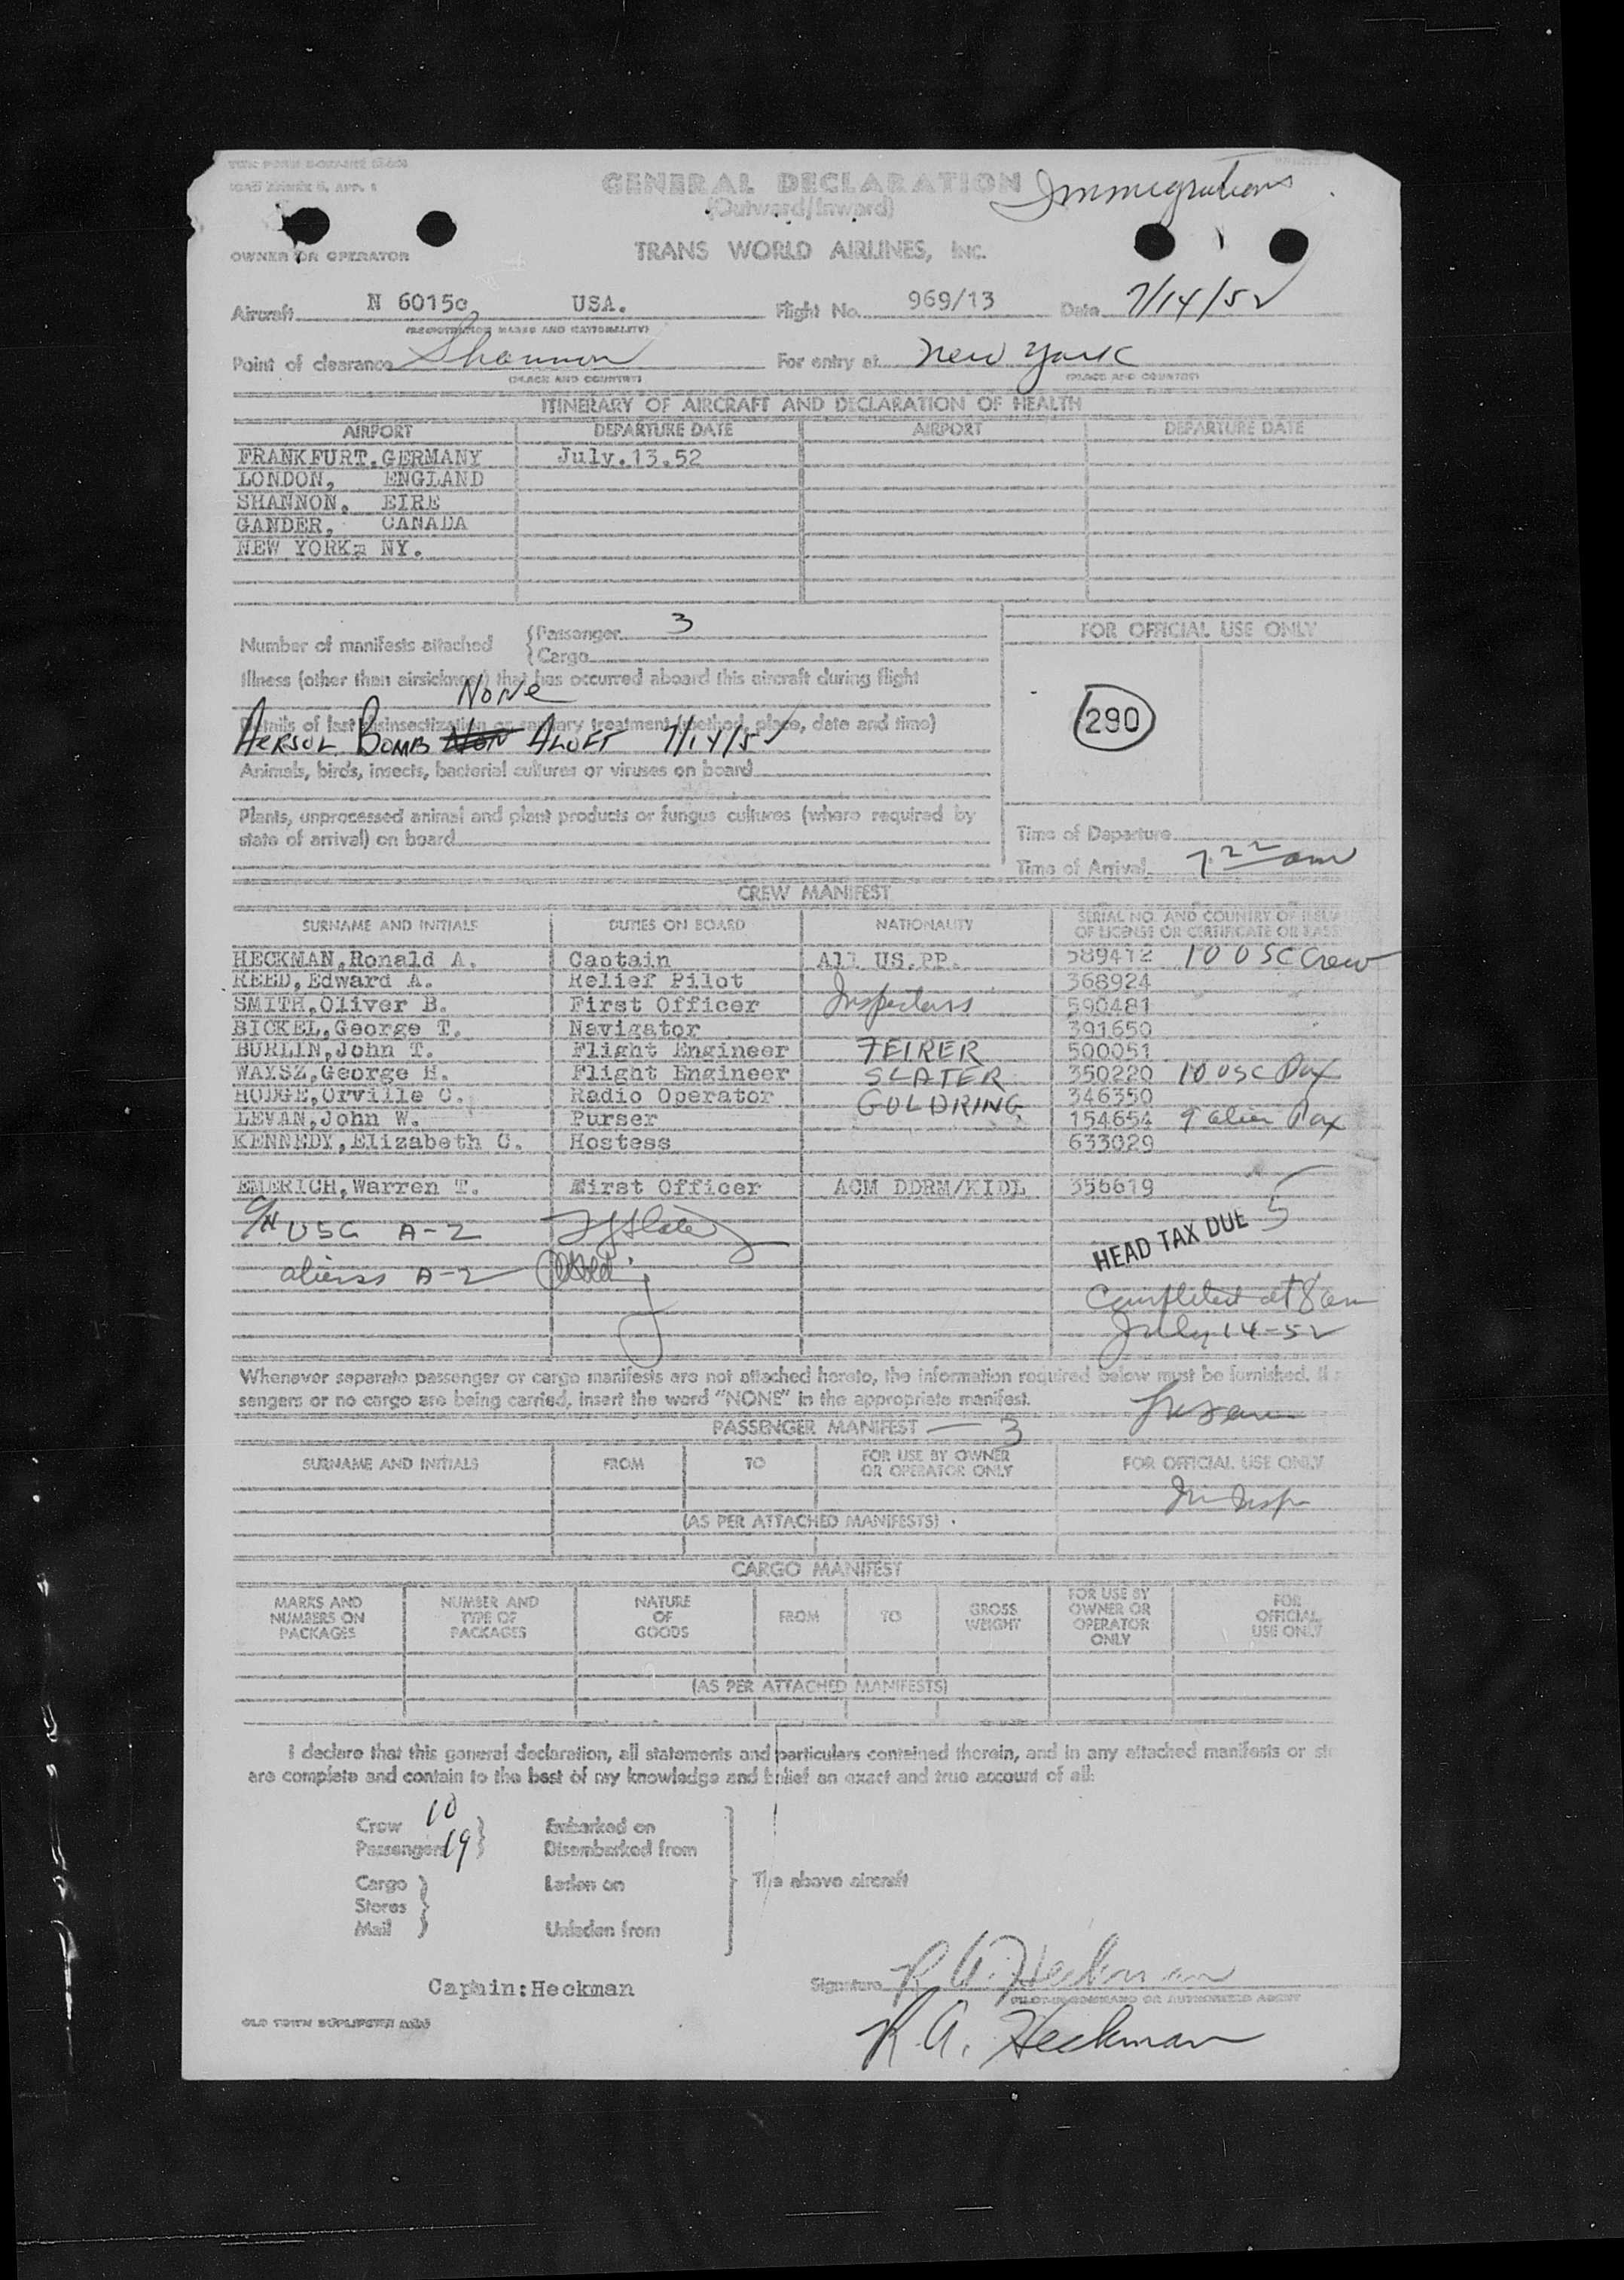 GENERAL DECLARATION
Immigrations
(Outward/Inward)
OWNER OR OPERATOR
TRANS WORLD AIRLINES, INC.
Aircraft N 6015c USA. Flight No. 969/13 Date 7/14/52
(REGISTRATION MARKS AND NATIONALITY)
Point of clearance Shannon For entry at New York
(PLACE AND COUNTRY) (PLACE AND COUNTRY)
ITINERARY OF AIRCRAFT AND DECLARATION OF HEALTH
AIRPORT DEPARTURE DATE AIRPORT DEPARTURE DATE
FRANKFURT.GERMANY July.13.52
LONDON, ENGLAND
SHANNON, EIRE
GANDER, CANADA
NEW YORK= NY.
Number of manifests attached { Passenger 3
{ Cargo
FOR OFFICIAL USE ONLY
Illness (other than airsickness) that has occurred aboard this aircraft during flight
None
Details of last disinsectization or sanitary treatment (method, place, date and time)
AERSOL BOMB ALOFT 7/14/52
290
Animals, birds, insects, bacterial cultures or viruses on board
Plants, unprocessed animal and plant products or fungus cultures (where required by
state of arrival) on board
Time of Departure
Time of Arrival 7 22 am
CREW MANIFEST
SURNAME AND INITIALS DUTIES ON BOARD NATIONALITY SERIAL NO. AND COUNTRY OF ISSUA
OF LICENSE OR CERTIFICATE OR PASS
HECKMAN,Ronald A. Captain All US.PP. 589412 10 USC Crew
REED, Edward A. Relief Pilot 368924
SMITH,Oliver B. First Officer Inspectors 590481
BICKEL,George T. Navigator 391650
BURLIN,John T. Flight Engineer FEIRER 500051
WAYSZ,George H. Flight Engineer SLATER 350220 10 USC Pax
HODGE,Orville C. Radio Operator GOLDRING 346350
LEVAN,John W. Purser 154654 9 alien Pax
KENNEDY,Elizabeth C. Hostess 633029
EMERICH,Warren T. First Officer ACM DDRM/KIDL 356619
USC A-2
HEAD TAX DUE 5
aliens A-2
Completed at 8 am
July 14-52
Whenever separate passenger or cargo manifests are not attached hereto, the information required below must be furnished. If
sengers or no cargo are being carried, insert the word "NONE" in the appropriate manifest.
PASSENGER MANIFEST — 3
SURNAME AND INITIALS FROM TO FOR USE BY OWNER OR OPERATOR ONLY FOR OFFICIAL USE ONLY
(AS PER ATTACHED MANIFESTS)
CARGO MANIFEST
MARKS AND NUMBERS ON PACKAGES NUMBER AND TYPE OF PACKAGES NATURE OF GOODS FROM TO GROSS WEIGHT FOR USE BY OWNER OR OPERATOR ONLY FOR OFFICIAL USE ONLY
(AS PER ATTACHED MANIFESTS)
I declare that this general declaration, all statements and particulars contained therein, and in any attached manifests or
are complete and contain to the best of my knowledge and belief an exact and true account of all:
Crew 10 Embarked on
Passengers 19 Disembarked from
Cargo Laden on The above aircraft
Stores
Mail Unladen from
Captain:Heckman Signature R A. Heckman
PILOT-IN-COMMAND OR AUTHORIZED AGENT
R. A. Heckman